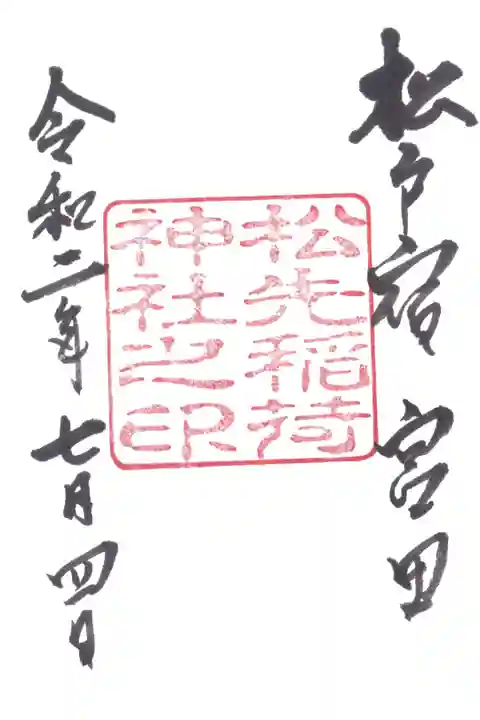 松戸宿 宮田
松先稲荷
神社之印
令和二年七月四日